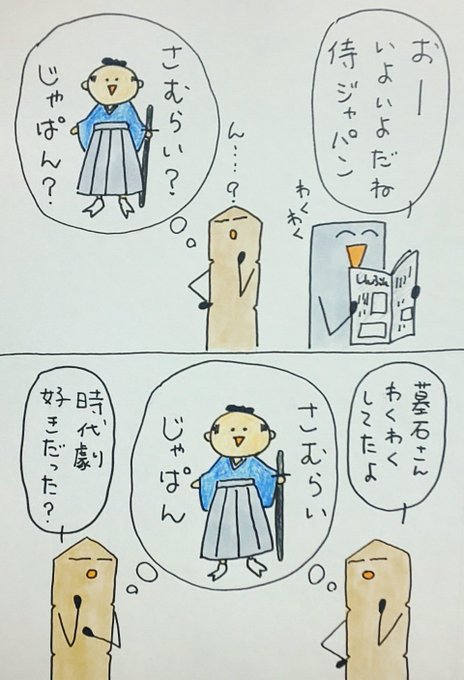 おー
いよいよだね
侍ジャパン
わくわく
しんぶん
ん…?
さむらい?
じゃぱん?
墓石さん
わくわく
してたよ
さむらい
じゃぱん
時代劇
好きだった?